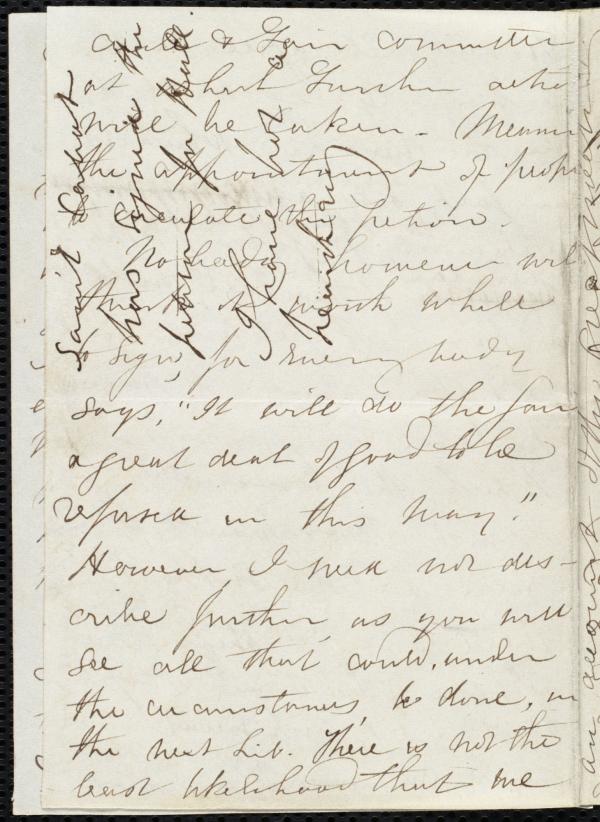 & Fair committee
at which further actio
will be taken. Meani
the appointment of prope
to circulate the petion.
Nobody however wil
think it worth while
to sign, for every body
says, "It will do the Fair
a great deal of good to be
refused in this way."
However I need not des-
cribe further, as you will
see all that could, under
the circumstances, be done, in
the next Lib. There is not the
least likelihood that we
Saml Cabot
has signed the
petition for Hall
I have not a